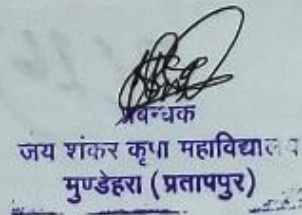 प्रबन्धक
जय शंकर कृपा महाविद्यालय
मुण्डेहरा (प्रतापपुर)